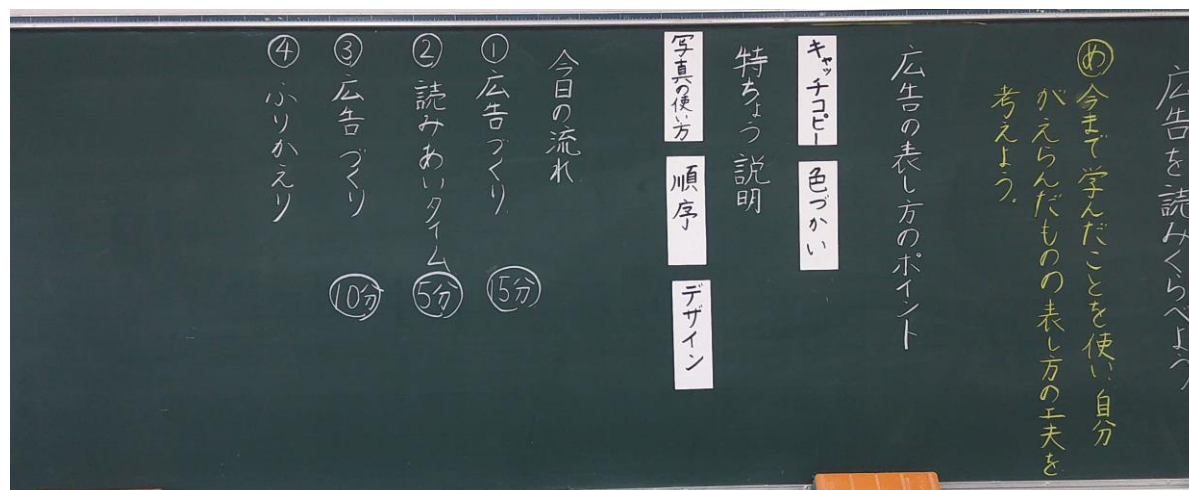 広告を読みくらべよう
め 今まで学んだことを使い、自分
がえらんだものの表し方の工夫を
考えよう。
広告の表し方のポイント
キャッチコピー 色づかい
特ちょう 説明
写真の使い方 順序 デザイン
今日の流れ
① 広告づくり 15分
② 読みあいタイム 5分
③ 広告づくり 10分
④ ふりかえり